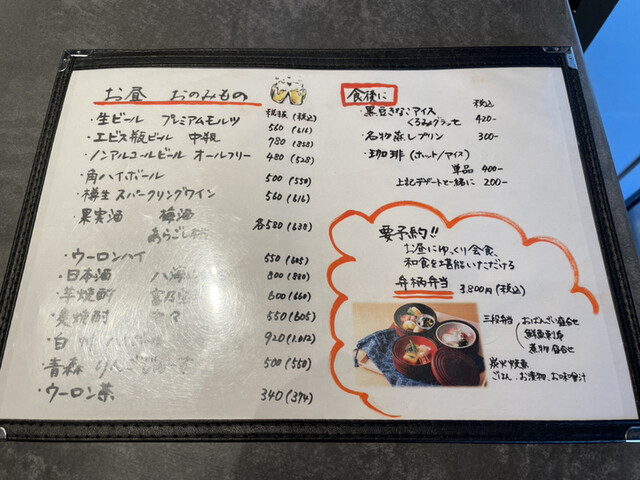 お昼 おのみもの
税抜 (税込)
・生ビール プレミアムモルツ 560 (616)
・エビス瓶ビール 中瓶 780 (858)
・ノンアルコールビール オールフリー 480 (528)
・角ハイボール 500 (550)
・樽生スパークリングワイン 560 (616)
・果実酒 梅酒 各580 (638)
あらごし
・ウーロンハイ 550 (605)
・日本酒 八海山 800 (880)
・芋焼酎 600 (660)
・麦焼酎 550 (605)
・白 920 (1,012)
・青森 りんごジュース 500 (550)
・ウーロン茶 340 (374)
食後に
税込
・黒豆きなこアイス 420-
くるみグラッセ
・名物蒸しプリン 300-
・珈琲 (ホット/アイス)
単品 400-
上記デザートと一緒に 200-
要予約!!
お昼にゆっくり会食、
和食を堪能いただける
弁柄弁当 3.800円(税込)
三段弁当
おばんざい盛合せ
鮮魚造り
煮物盛合せ
炭火焼魚
ごはん、お漬物、お味噌汁